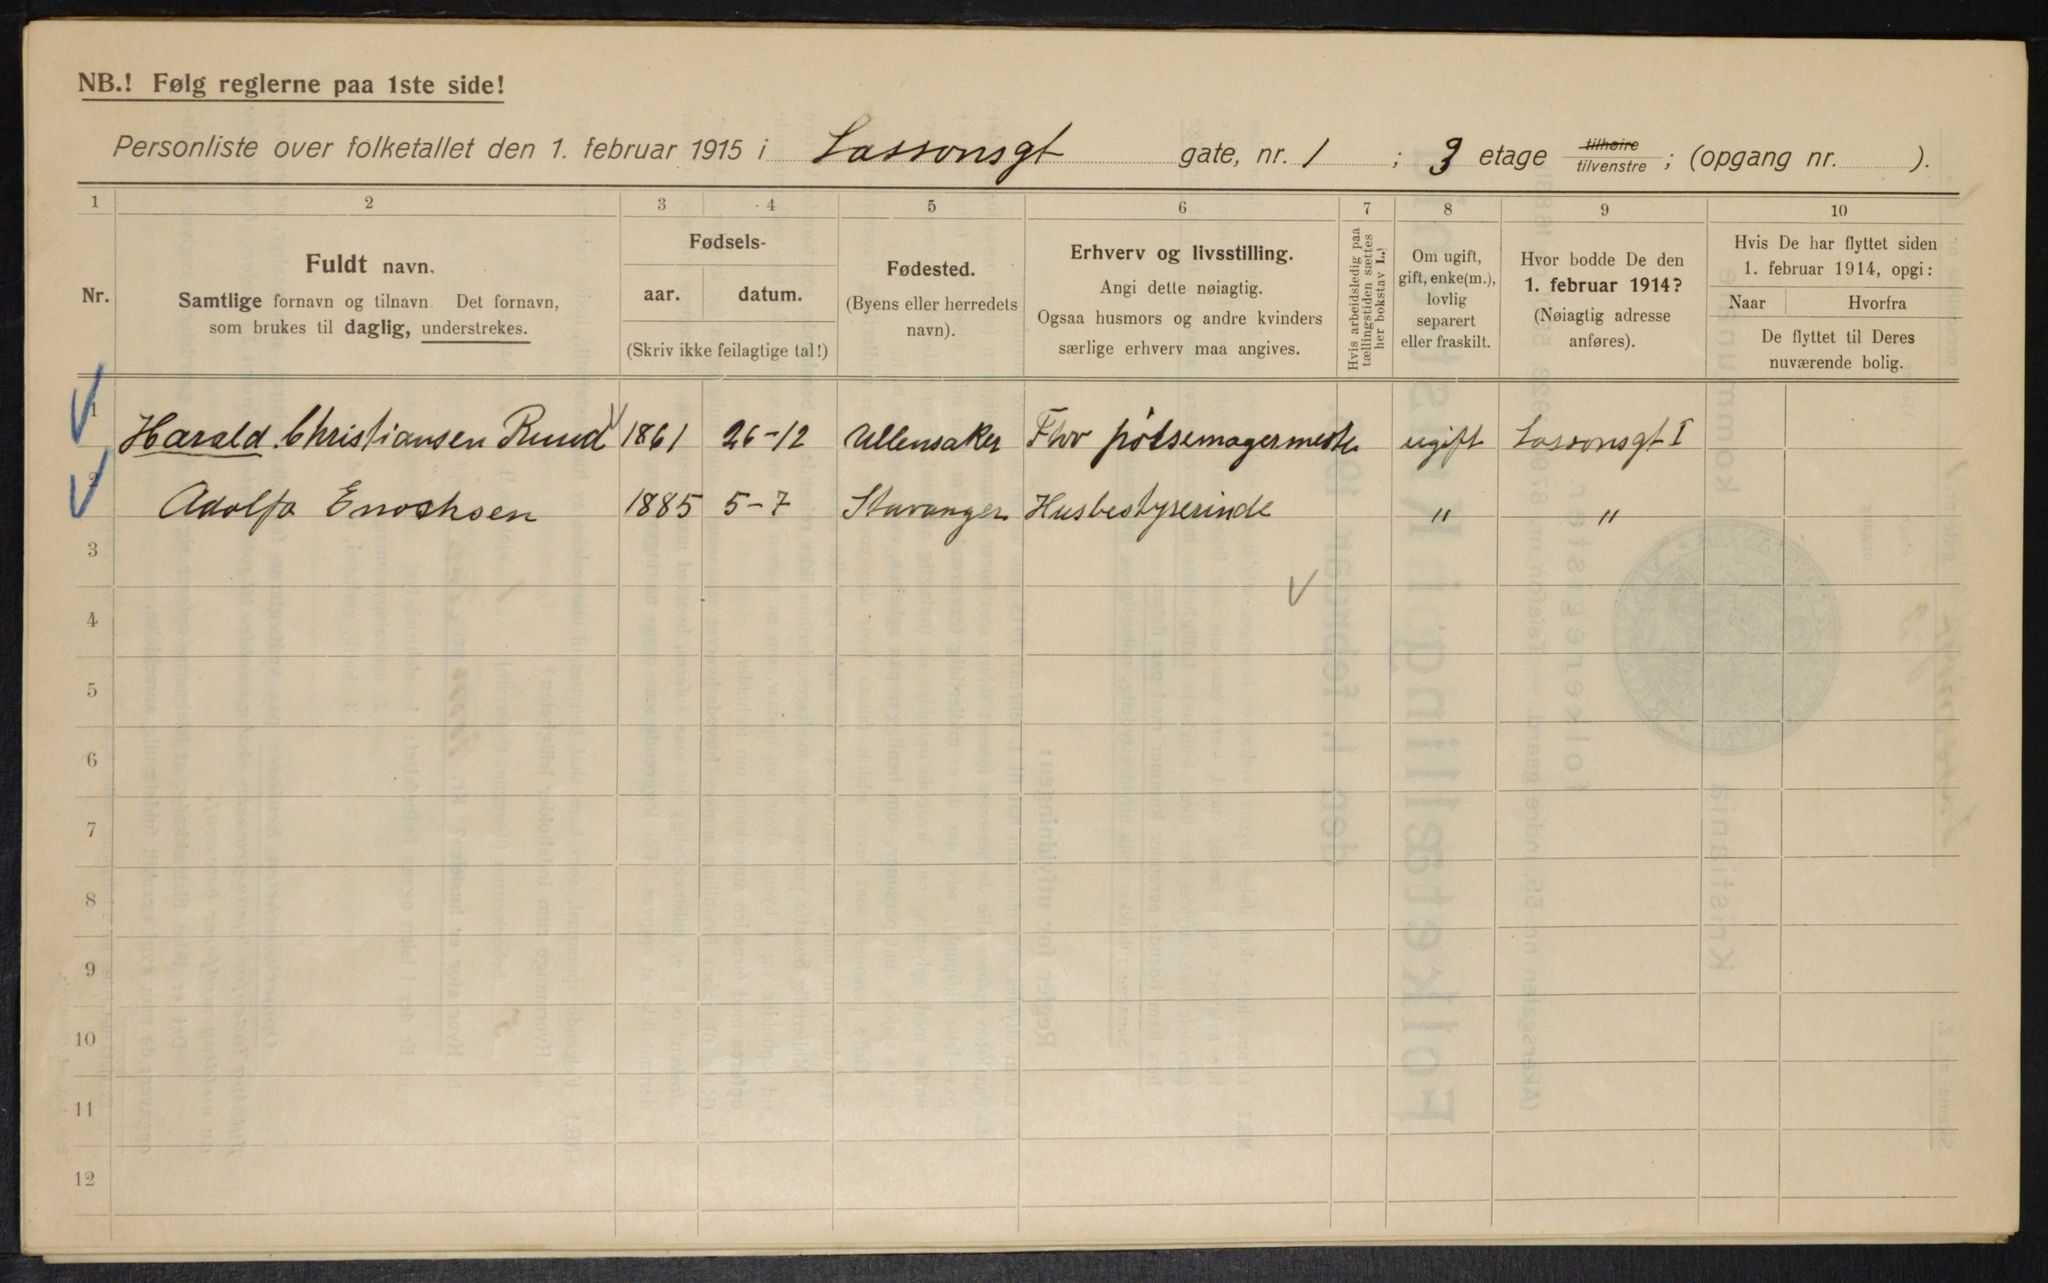 NB.! Følg reglerne paa 1ste side!
Personliste over folketallet den 1. februar 1915 i Lassonsgt gate, nr. 1 ; 3 etage tilhøire tilvenstre; (opgang nr. ).
1 2 3 4 5 6 7 8 9 10
Nr.
Fuldt navn.
Samtlige fornavn og tilnavn. Det fornavn,
som brukes til daglig, understrekes.
Fødsels-
aar. datum.
(Skriv ikke feilagtige tal!)
Fødested.
(Byens eller herredets
navn).
Erhverv og livsstilling.
Angi dette nøiagtig.
Ogsaa husmors og andre kvinders
særlige erhverv maa angives.
Hvis arbeidsledig paa
tællingstiden sættes
her bokstav L.
Om ugift,
gift, enke(m.),
lovlig
separert
eller fraskilt.
Hvor bodde De den
1. februar 1914?
(Nøiagtig adresse
anføres).
Hvis De har flyttet siden
1. februar 1914, opgi:
Naar Hvorfra
De flyttet til Deres
nuværende bolig.
1 Harald Christiansen Ruud 1861 26-12 Ullensaker Fhv pølsemagermester ugift Lassonsgt I
2 Adolfa Enochsen 1885 5-7 Stavanger Husbestyrerinde " "
3
4
5
6
7
8
9
10
11
12